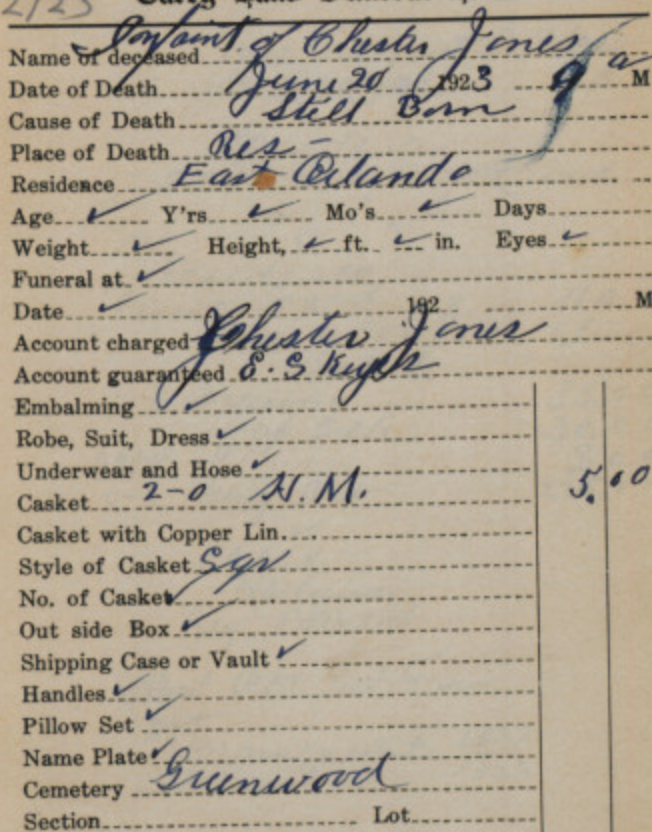 2/23
Name of deceased Infant of Chester Jones
Date of Death June 20 1923 9 a M
Cause of Death Still Born
Place of Death Res -
Residence East Orlando
Age ✓ Y'rs ✓ Mo's ✓ Days
Weight ✓ Height, ✓ ft. ✓ in. Eyes ✓
Funeral at ✓
Date ✓ 192 M
Account charged Chester Jones
Account guaranteed E. S
Embalming ✓
Robe, Suit, Dress ✓
Underwear and Hose ✓
Casket 2-0 H. M. 5.00
Casket with Copper Lin.
Style of Casket Sqr
No. of Casket ✓
Out side Box ✓
Shipping Case or Vault ✓
Handles ✓
Pillow Set ✓
Name Plate ✓
Cemetery Greenwood
Section Lot